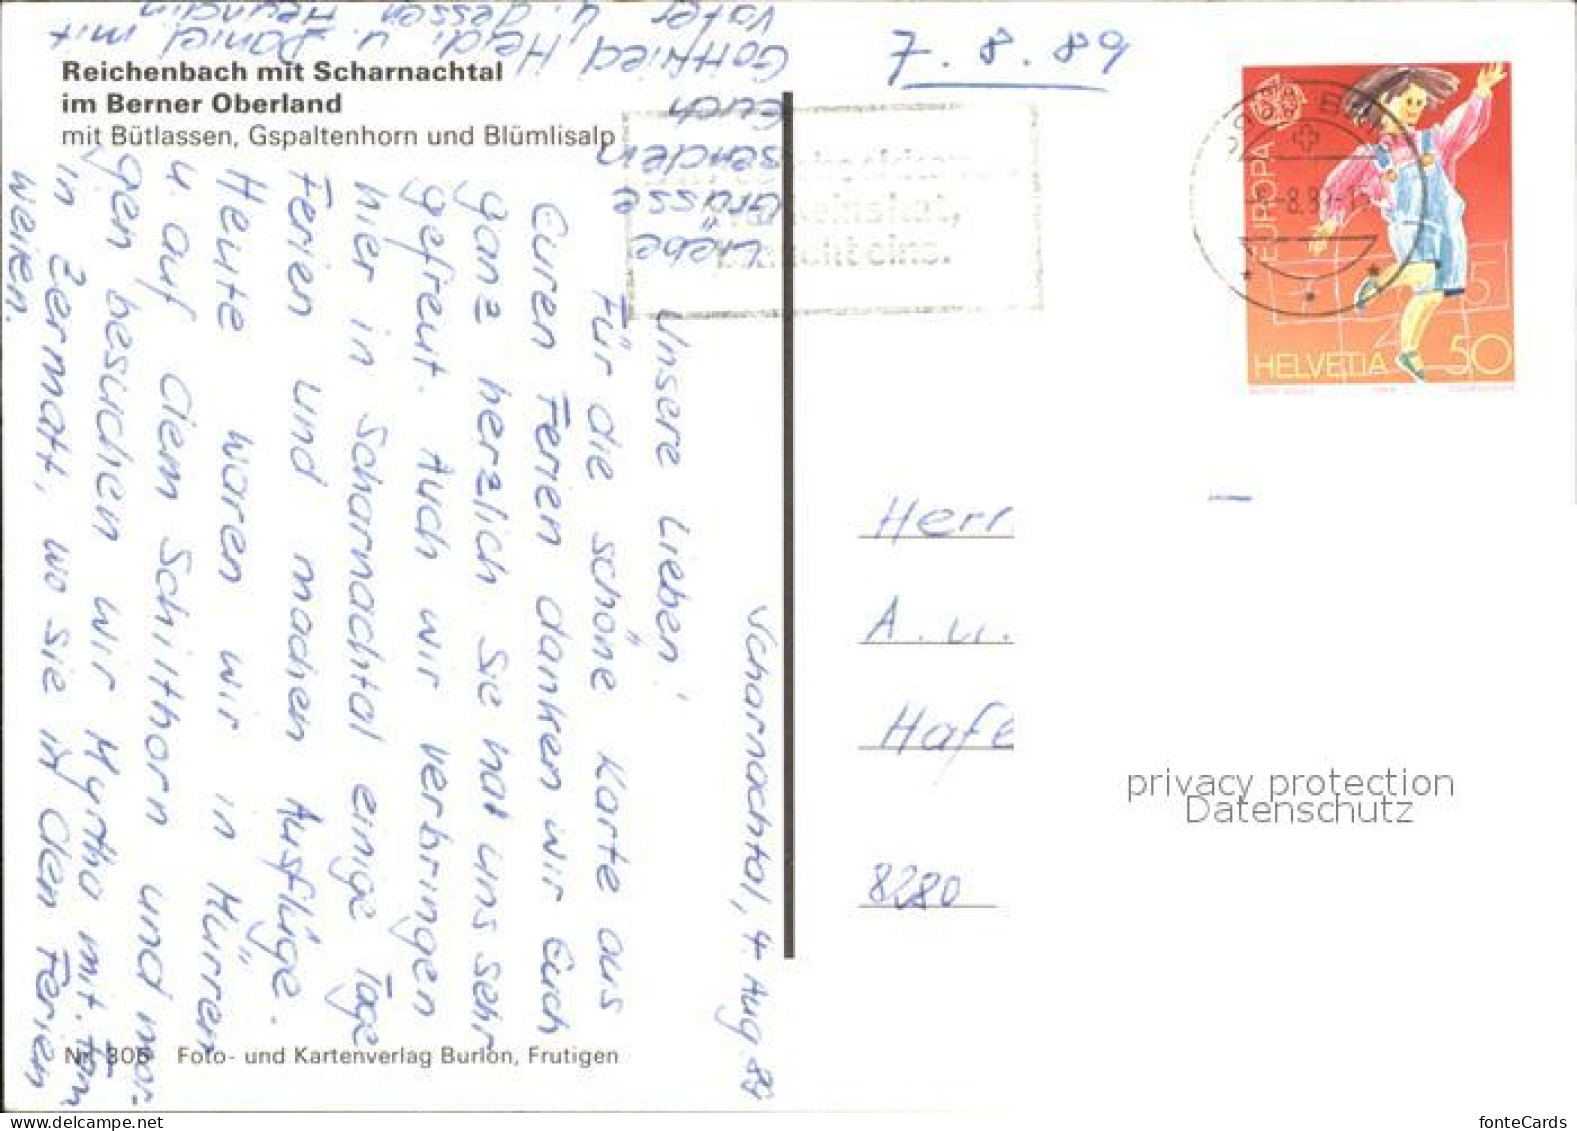 Reichenbach mit Scharnachtal
im Berner Oberland
mit Bütlassen, Gspaltenhorn und Blümlisalp
Scharnachtal, 4. Aug. 89
Unsere Lieben!
Für die schöne Karte aus
Euren Ferien danken wir Euch
ganz herzlich. Sie hat uns sehr
gefreut. Auch wir verbringen
hier in Scharnachtal einige Tage
Ferien und machen Ausflüge.
Heute waren wir in Mürren
u. auf dem Schilthorn und mor-
gen besuchen wir Myrtha mit. Fam
in Zermatt, wo sie in den Ferien
weilen.
Liebe
Grüsse
senden
Euch
Gottfried, Heidi u. Daniel mit
Vater u. dessen Freundin
Nr. 306 Foto- und Kartenverlag Burlon, Frutigen
7. 8. 89
EUROPA
HELVETIA 50
-8.89-15
Herr
A. u.
Hafe
8280
privacy protection
Datenschutz
fonteCards